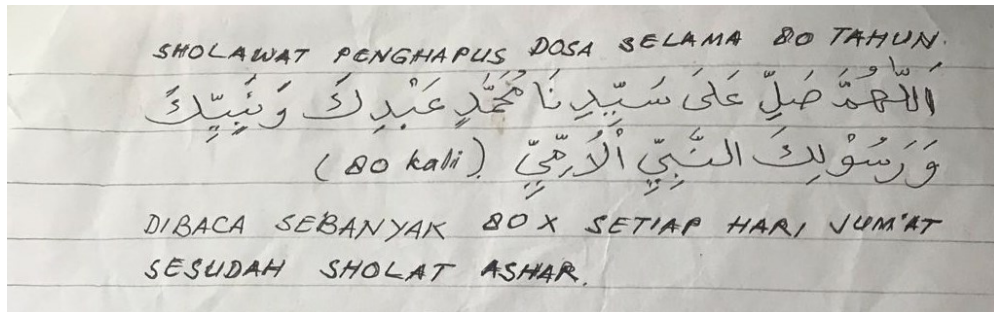 SHOLAWAT PENGHAPUS DOSA SELAMA 80 TAHUN.
اَللّٰهُمَّ صَلِّ عَلَى سَيِّدِنَا مُحَمَّدٍ عَبْدِكَ وَنَبِيِّكَ
وَرَسُوْلِكَ النَّبِيِّ الْاُمِّيِّ (80 kali).
DIBACA SEBANYAK 80X SETIAP HARI JUM'AT
SESUDAH SHOLAT ASHAR.